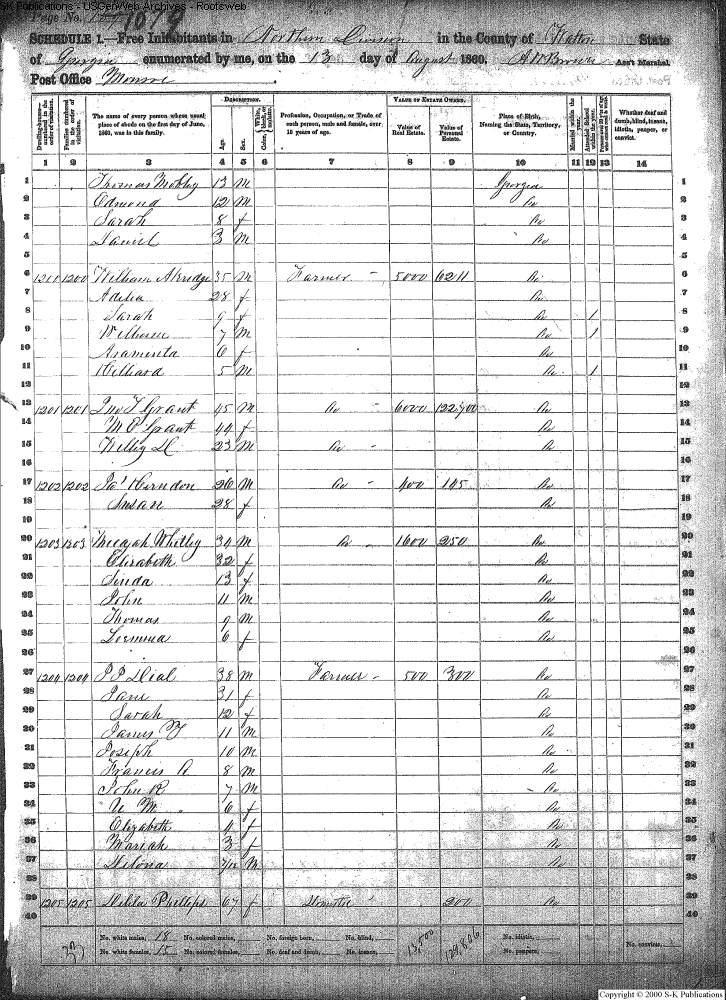 S-K Publications - USGenWeb Archives - Rootsweb
Page No. 1079
SCHEDULE 1.—Free Inhabitants in Northern Division in the County of Walton State
of Georgia enumerated by me, on the 13 day of August 1860. A W Brown Ass't Marshal.
Post Office Monroe
Dwelling-houses—numbered in the order of visitation.
Families numbered in the order of visitation.
The name of every person whose usual place of abode on the first day of June, 1860, was in this family.
DESCRIPTION.
Age.
Sex.
Color, White, black, or mulatto.
Profession, Occupation, or Trade of each person, male and female, over 15 years of age.
VALUE OF ESTATE OWNED.
Value of Real Estate.
Value of Personal Estate.
Place of Birth, Naming the State, Territory, or Country.
Married within the year.
Attended School within the year.
Whether deaf and dumb, blind, insane, idiotic, pauper, or convict.
1 2 3 4 5 6 7 8 9 10 11 12 13 14
1 Thomas Mobley 13 M Georgia 1
2 Edmond 12 M Do 2
3 Sarah 8 f Do 3
4 Daniel 3 M Do 4
5 5
6 1200 Akridge 35 M Farmer 5000 6211 Do 6
7 28 f Do 7
8 Sarah 9 f Do 1 8
9 William 7 M Do 1 9
10 Araminta 6 f Do 10
11 5 M Do 1 11
12 12
13 1201 1201 Jno T Grant 45 M Do 6000 122,900 Do 13
14 M E Grant 44 f Do 14
15 23 M Do Do 15
16 16
17 1202 1202 Herndon 26 M Do 400 145 Do 17
18 Susan 28 f Do 18
19 19
20 1203 1203 Micajah Whitley 34 M Do 1600 250 Do 20
21 Elizabeth 32 f Do 21
22 Linda 13 f Do 22
23 John 11 M Do 23
24 Thomas 9 M Do 24
25 6 f Do 25
26 26
27 1204 1204 J P Dial 38 M Farmer 500 300 Do 27
28 Jane 31 f Do 28
29 Sarah 12 f Do 29
30 James Y 11 M Do 30
31 Joseph 10 M Do 31
32 Francis A 8 M Do 32
33 John R 7 M Do 33
34 M 6 f Do 34
35 Elizabeth 4 f Do 35
36 Mariah 3 f Do 36
37 M Do 37
38 38
39 1205 1205 Phillips 67 f Domestic 200 Do 39
40 40
No. white males, 18 No. colored males, No. foreign born, No. blind, 13,500 129,806 No. idiotic, No. convicts,
No. white females, 15 No. colored females, No. deaf and dumb, No. insane, No. paupers,
Copyright © 2000 S-K Publications